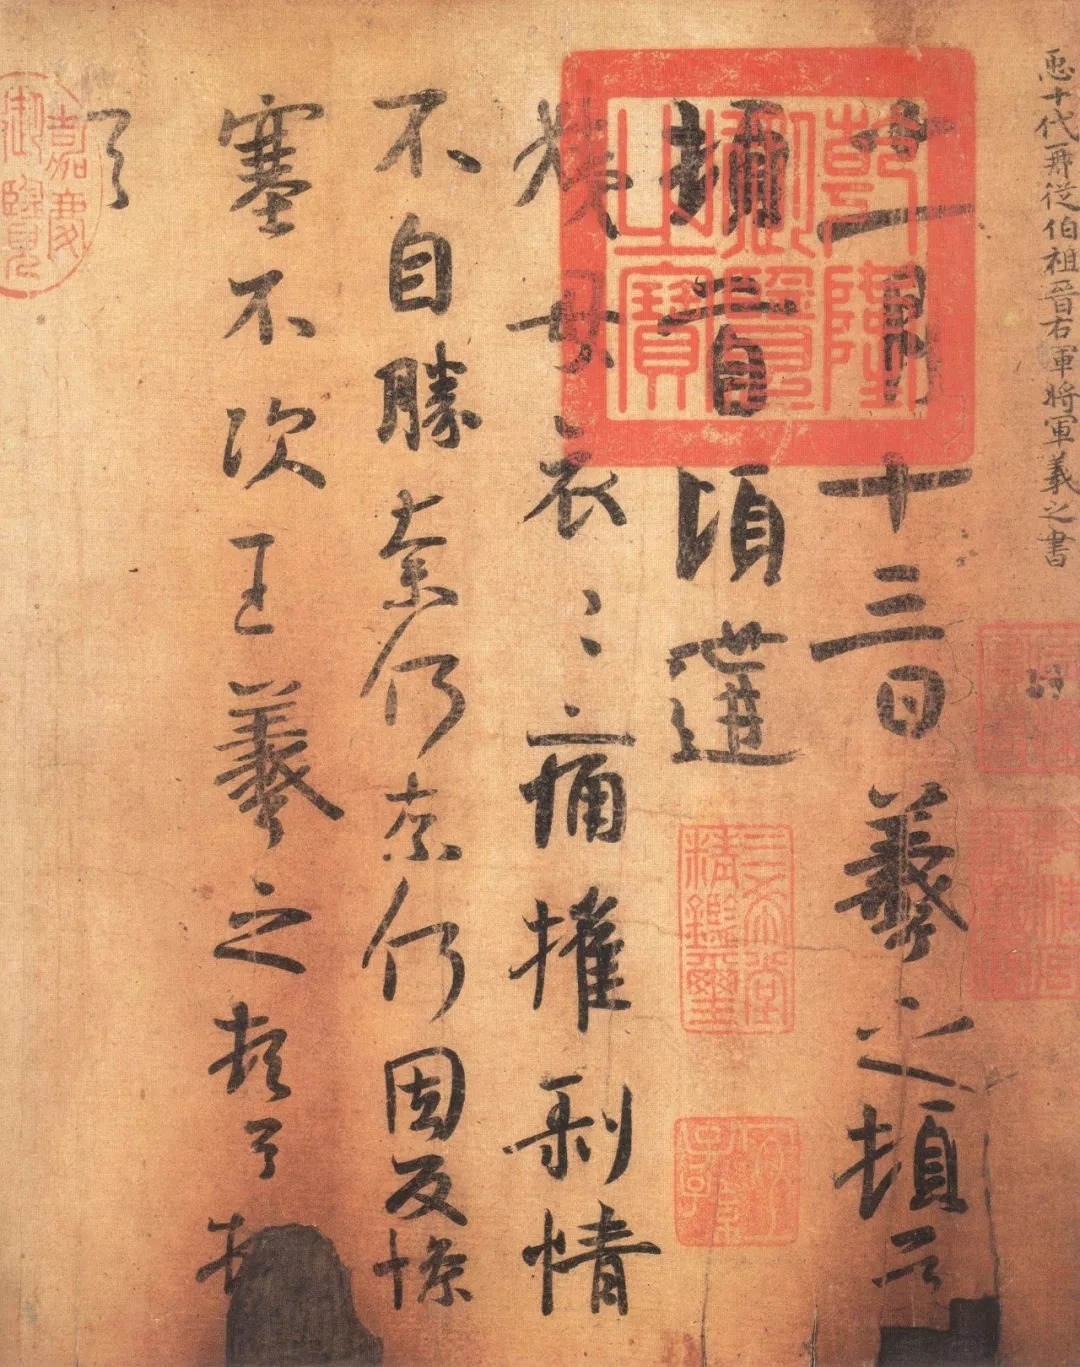 𢘑十代再從伯祖晉右軍將軍羲之書
十一月十三日羲之頓首
頓首頃遘
姨母哀〻痛摧剝情
不自勝奈何奈何因反慘
塞不次王羲之頓首頓
首
乾隆御覽之寶
三希堂精鑑璽
宜子孫
嘉慶御覽